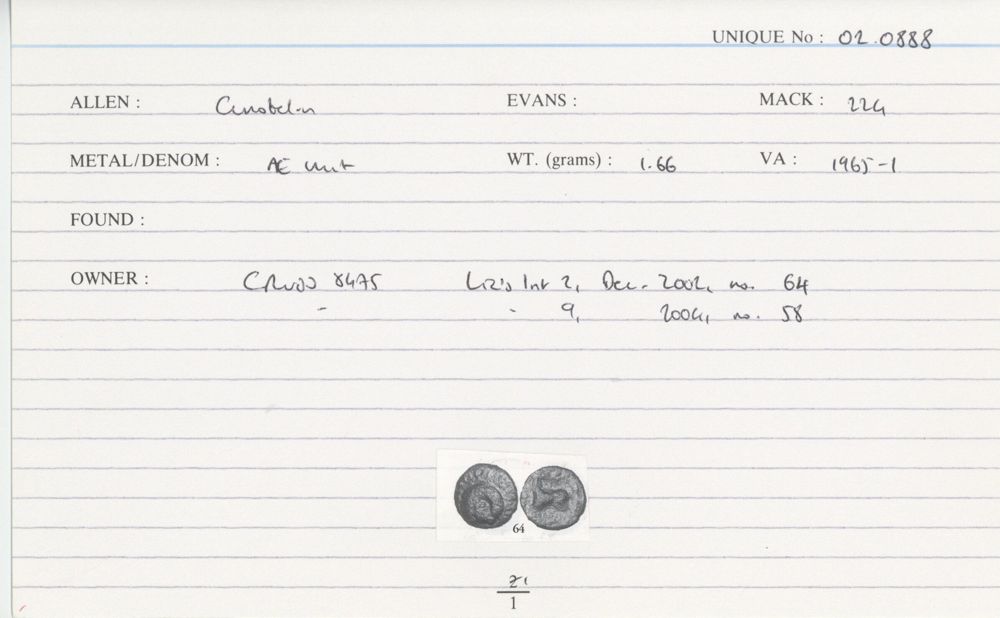 UNIQUE No : 02.0888
ALLEN : Cunobelin EVANS : MACK : 224
METAL/DENOM : AE unit WT. (grams) : 1.66 VA : 1965-1
FOUND :
OWNER : 8475 Liz's Int 2, Dec. 2002, no. 64
- - 9, 2004, no. 58
64
21
1